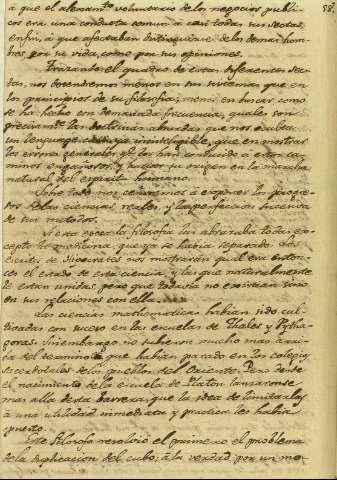 á que el alexam.to voluntario de los negocios publi- 58.
cos era una conducta comun á casi todas sus sectas
enfin, á que afectaban distinguirse de los demas hom-
bres por su vida, como por sus opiniones.
Trazando el quadro de estas diferentes sec-
tas, nos detendremos menos en sus sistemas que en
los principios de su filosofia; menos en buscar como
se ha hecho con demasiada frecuencia, quales son
precisam.te las doctrinas absurdas que nos oculta
un lenguage casi ya ininteligible, que en mostrar
los errores generales q.e los han conducido á estos ca-
minos engañosos, y hallar su origen en la marcha
natural del espiritu humano.
Sobre todo nos ceñiremos á exponer los progre-
sos de las ciencias reales, y la perfeccion sucesiva
de sus metodos.
A esta epoca la filosofia las abrazaba todas, ex-
cepto la medicina, que ya se habia separado. Los
Escritos de Hipocrates nos mostrarán qual era enton-
ces el estado de esta ciencia, y las que naturalmente
le estan unidas, pero que todavia no existian sino
en sus relaciones con ella.
Las ciencias mathematicas habian sido cul-
tivadas con suceso en las escuelas de Thales y Pytha-
goras. Sin embargo no subieron mucho mas arri-
ba del termino á que habian parado en los colegios
sacerdotales de los pueblos del Oriente. Pero desde
el nacimiento de la escuela de Platon lanzaronse
mas alla de esta barrera, que la idea de limitarlas
á una utilidad inmediata y practica les habia
puesto.
Este Filosofo resolvió el primero el problema
de la duplicacion del cubo: á la verdad por un mo-